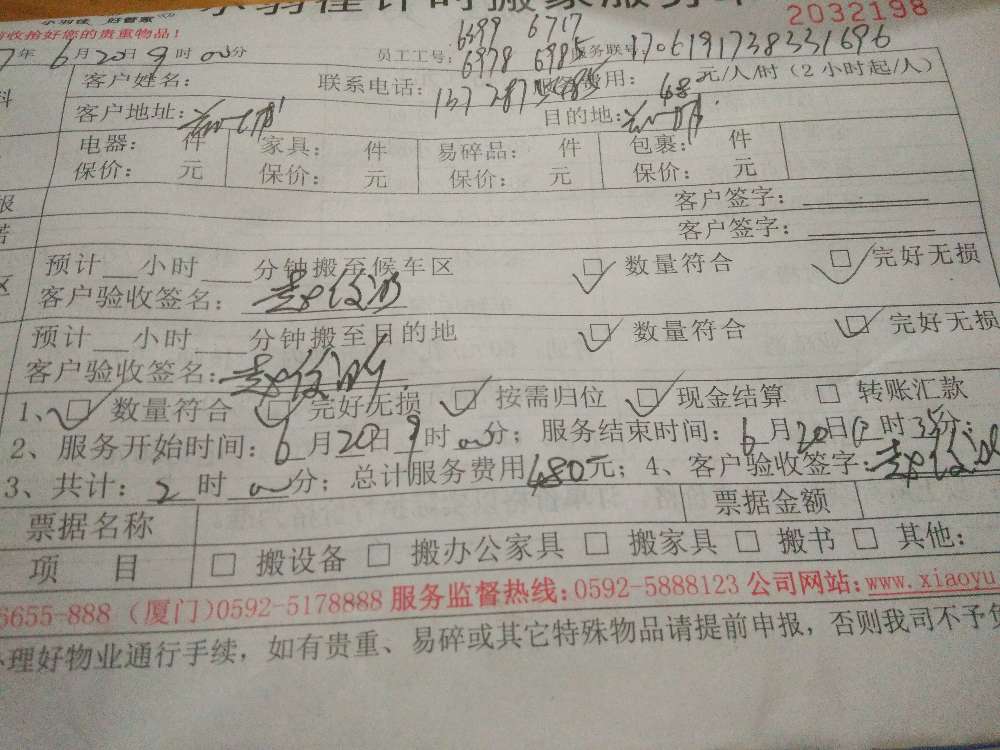 计时搬家服务
2032198
收拾好您的贵重物品！
7年6月20日9时00分 员工工号： 6399 6717 6978 6985 服务联号：170619173833 1696
客户姓名： 联系电话：137 287 服务费用：48元/人/时（2小时起/人）
客户地址： 目的地：
电器： 件 家具： 件 易碎品： 件 包裹： 件
保价： 元 保价： 元 保价： 元 保价： 元
客户签字：
客户签字：
预计 小时 分钟搬至候车区 数量符合 完好无损
客户验收签名：
预计 小时 分钟搬至目的地 数量符合 完好无损
客户验收签名：
1、 数量符合 完好无损 按需归位 现金结算 转账汇款
2、服务开始时间：6月20日9时00分；服务结束时间：6月20日 时35分；
3、共计：2时00分；总计服务费用480元；4、客户验收签字：
票据名称 票据金额
项 目 搬设备 搬办公家具 搬家具 搬书 其他：
6655-888（厦门）0592-5178888 服务监督热线：0592-5888123 公司网站：www.xiaoyu
理好物业通行手续，如有贵重、易碎或其它特殊物品请提前申报，否则我司不予